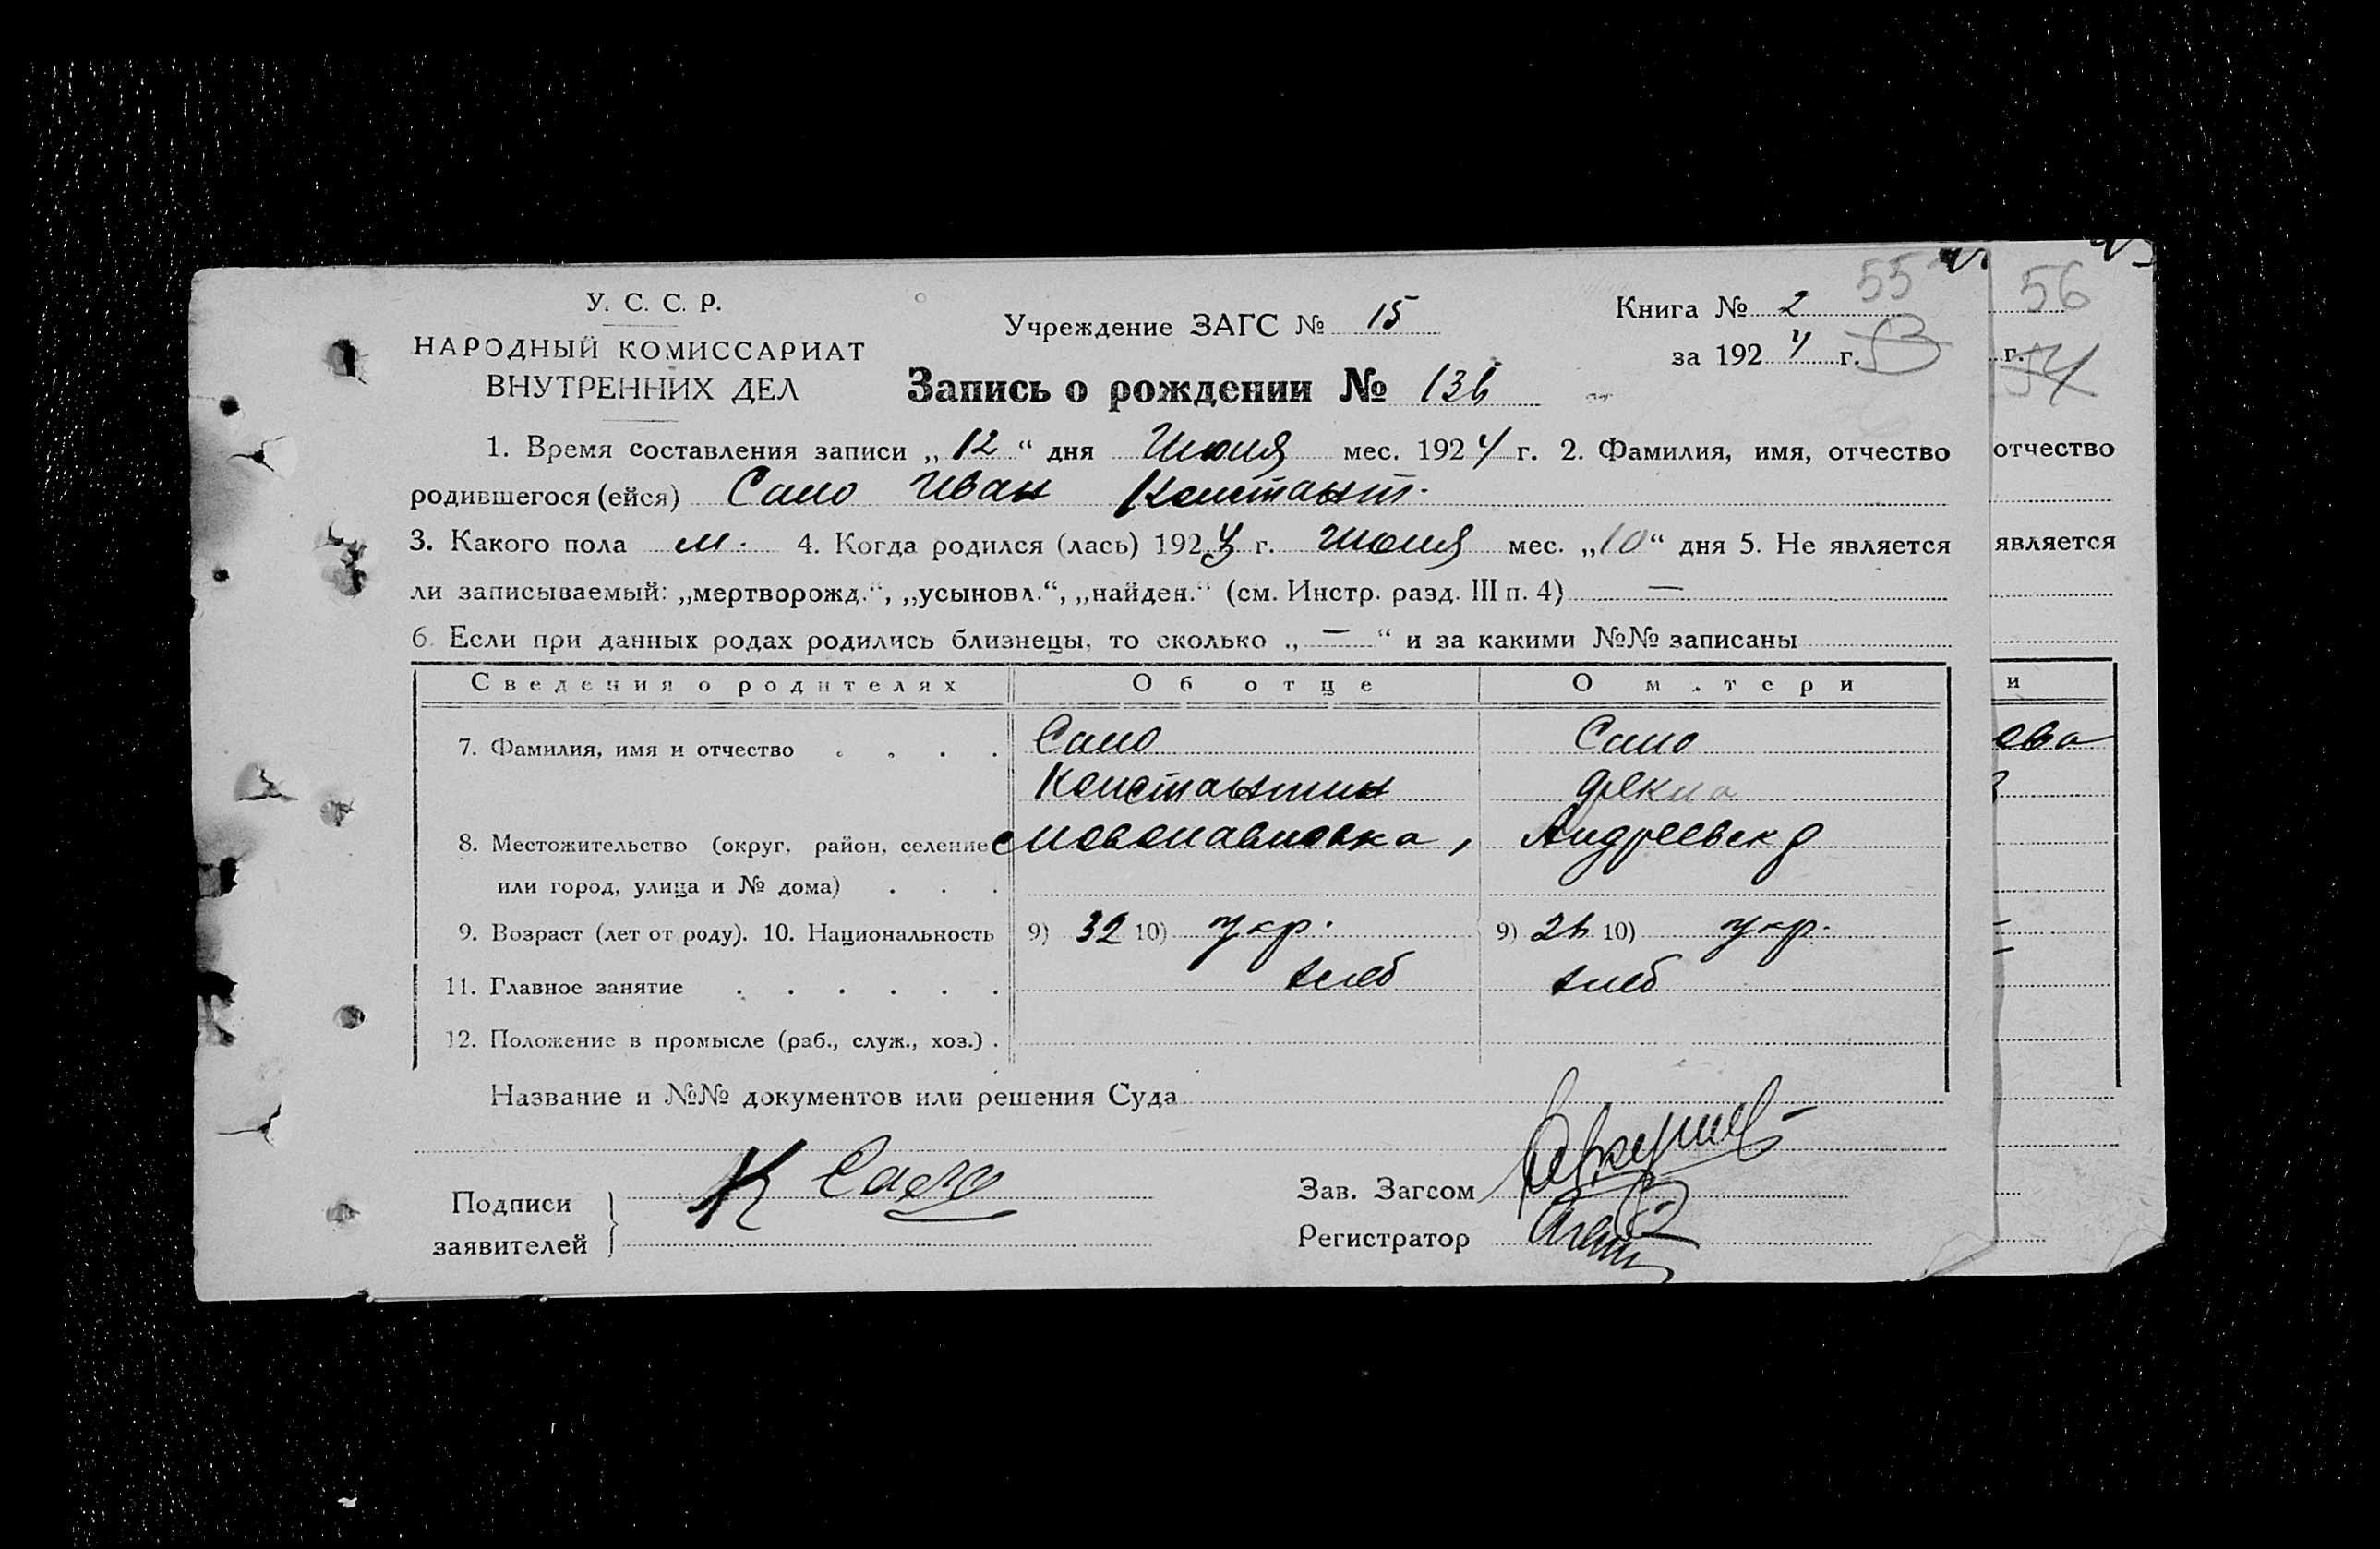 У. С. С. Р.
НАРОДНЫЙ КОМИССАРИАТ
ВНУТРЕННИХ ДЕЛ
Учреждение ЗАГС № 15
Книга № 2
55
за 1924 г.
Запись о рождении № 136
1. Время составления записи „12“ дня Июля мес. 1924 г. 2. Фамилия, имя, отчество
родившегося (ейся) Сало Иван Констант.
3. Какого пола м. 4. Когда родился (лась) 1924 г. Июля мес. „10“ дня 5. Не является
ли записываемый: „мертворожд.“, „усыновл.“, „найден.“ (см. Инстр. разд. III п. 4) —
6. Если при данных родах родились близнецы, то сколько „—“ и за какими №№ записаны
Сведения о родителях Об отце О матери
7. Фамилия, имя и отчество . . . . Сало Сало
Константин
8. Местожительство (округ, район, селение с Новопавловка, Андреевск
или город, улица и № дома) . . .
9. Возраст (лет от роду). 10. Национальность 9) 32 10) укр. 9) 26 10) укр.
11. Главное занятие . . . . . . хлеб хлеб
12. Положение в промысле (раб., служ., хоз.) .
Название и №№ документов или решения Суда
Подписи
заявителей
К Сало
Зав. Загсом
Регистратор
56
г. 54
отчество
является
и
ова